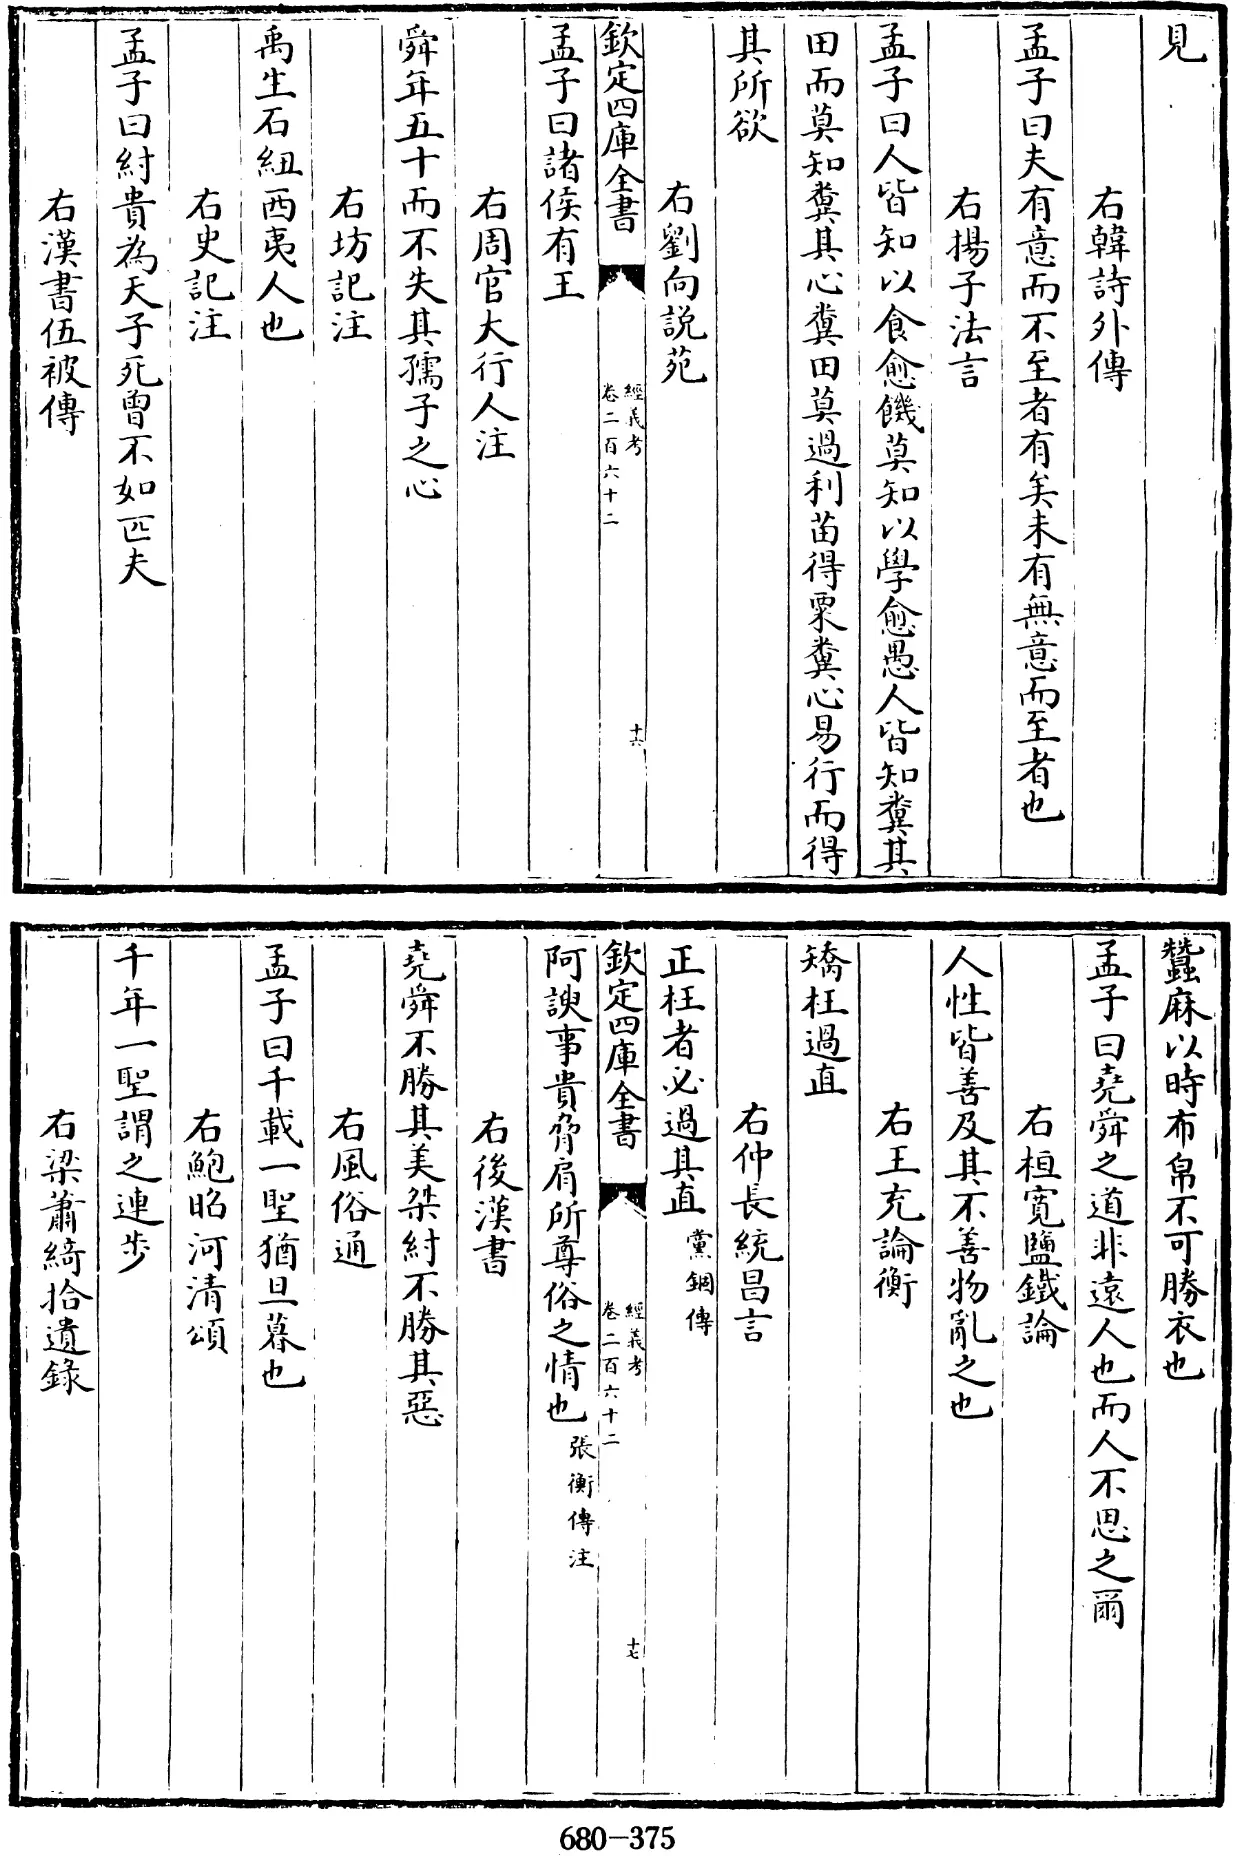 見
右韓詩外傳
孟子曰夫有意而不至者有矣未有無意而至者也
右揚子法言
孟子曰人皆知以食愈饑莫知以學愈愚人皆知糞其
田而莫知糞其心糞田莫過利苗得粟糞心易行而得
其所欲
右劉向説苑
欽定四庫全書
經義考
卷二百六十二
十六
孟子曰諸侯有王
右周官大行人注
舜年五十而不失其孺子之心
右坊記注
禹生石紐西夷人也
右史記注
孟子曰紂貴為天子死曾不如匹夫
右漢書伍被傳
蠶麻以時布帛不可勝衣也
孟子曰堯舜之道非遠人也而人不思之爾
右桓寛鹽鐵論
人性皆善及其不善物亂之也
右王充論衡
矯枉過直
右仲長統昌言
正枉者必過其直黨錮傳
欽定四庫全書
經義考
卷二百六十二
十七
阿諛事貴脅肩所尊俗之情也張衡傳注
右後漢書
堯舜不勝其美桀紂不勝其惡
右風俗通
孟子曰千載一聖猶旦暮也
右鮑昭河清頌
千年一聖謂之連步
右梁蕭綺拾遺錄
680-375